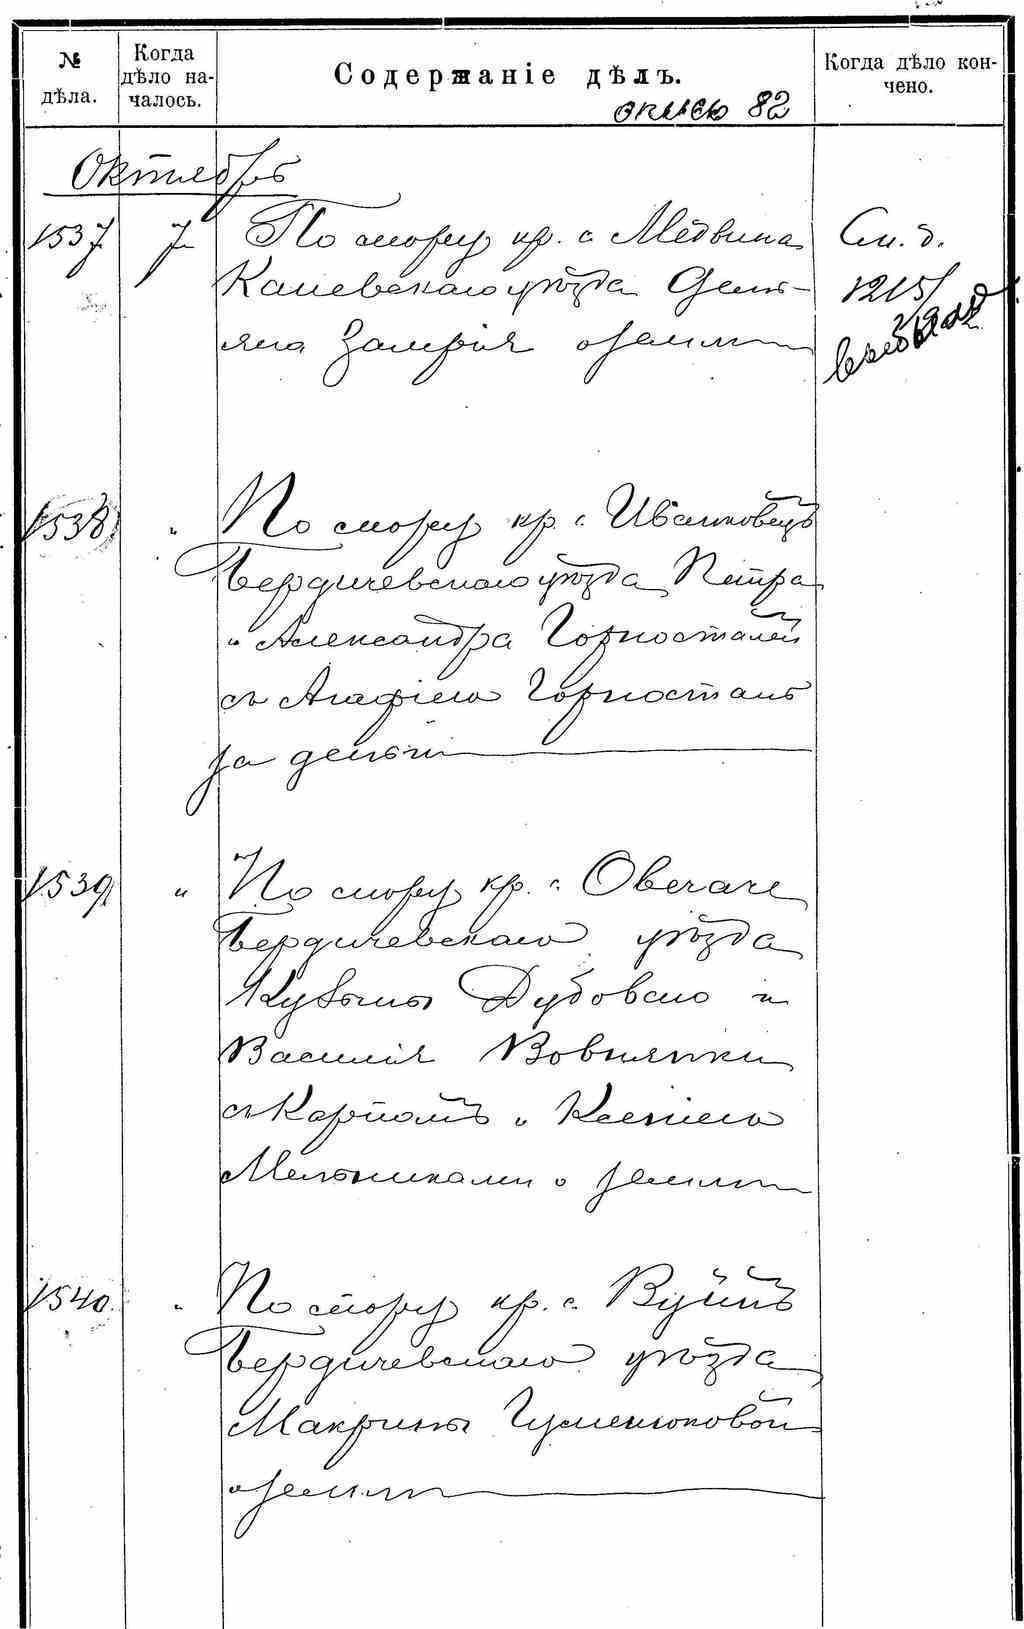 № дѣла.
Когда дѣло на-
чалось.
Содержаніе дѣлъ.
Когда дѣло кон-
чено.
82
Октябрь
1537 7 По спору кр. с. Медвина См. д.
Каневскаго уѣзда Демь- 1215/
яна Запрія о земли
1538 " По спору кр. с. Иванковецъ
Бердичевскаго уѣзда Петра
и Александра Горностаей
съ Агафіею Горностаь
за деньги
1539 " По спору кр. с. Овечаче
Бердичевскаго уѣзда
Кузьмы Дубового и
Василія Вовнянки
съ Карпомъ и Ксеніею
Мельниками о земли
1540. " По спору кр. с. Вуйнъ
Бердичевскаго уѣзда
Макрины Гуменюковой
о земли